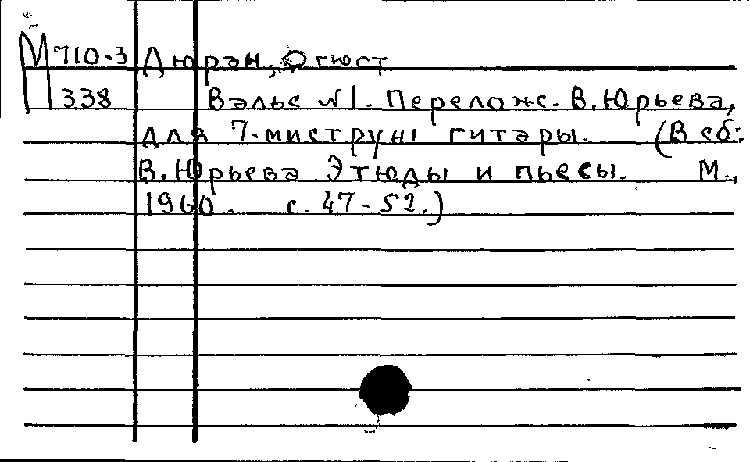 М 710-3 Дюран, Огюст
338 Вальс №1. Перелож. В. Юрьева,
для 7-миструн гитары. (В сб:
В. Юрьева Этюды и пьесы. М.,
1960. с. 47-52.)